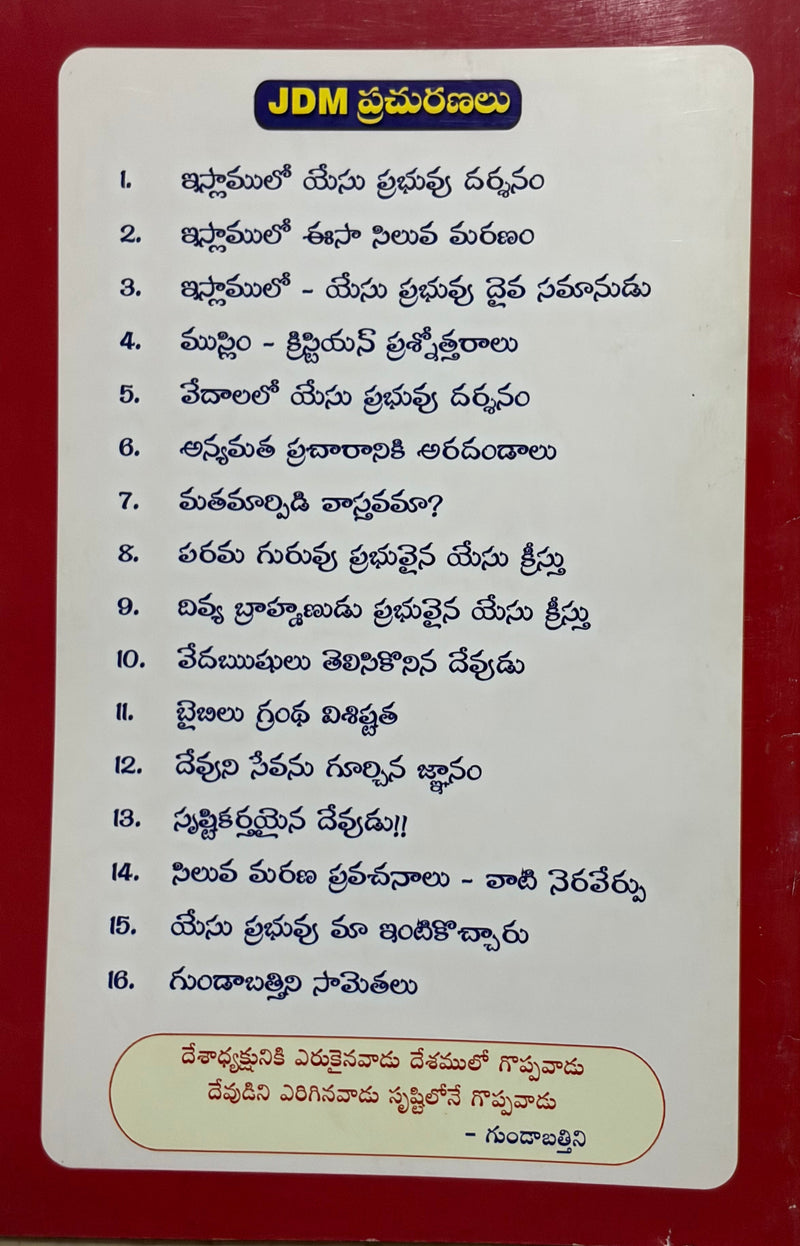 JDM ప్రచురణలు
1. ఇస్లాములో యేసు ప్రభువు దర్శనం
2. ఇస్లాములో ఈసా సిలువ మరణం
3. ఇస్లాములో - యేసు ప్రభువు దైవ సమానుడు
4. ముస్లిం - క్రిస్టియన్ ప్రశ్నోత్తరాలు
5. వేదాలలో యేసు ప్రభువు దర్శనం
6. అన్యమత ప్రచారానికి అరదండాలు
7. మతమార్పిడి వాస్తవమా?
8. పరమ గురువు ప్రభువైన యేసు క్రీస్తు
9. దివ్య బ్రాహ్మణుడు ప్రభువైన యేసు క్రీస్తు
10. వేదఋషులు తెలిసికొనిన దేవుడు
11. బైబిలు గ్రంథ విశిష్టత
12. దేవుని సేవను గూర్చిన జ్ఞానం
13. సృష్టికర్తయైన దేవుడు!!
14. సిలువ మరణ ప్రవచనాలు - వాటి నెరవేర్పు
15. యేసు ప్రభువు మా ఇంటికొచ్చారు
16. గుండాబత్తిని సామెతలు
దేశాధ్యక్షునికి ఎరుకైనవాడు దేశములో గొప్పవాడు
దేవుడిని ఎరిగినవాడు సృష్టిలోనే గొప్పవాడు
- గుండాబత్తిని